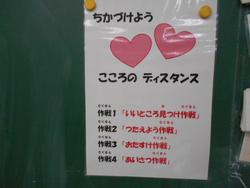 ちかづけよう
こころの ディスタンス
作戦1「いいところ見つけ作戦」
作戦2「つたえよう作戦」
作戦3「おたすけ作戦」
作戦4「あいさつ作戦」